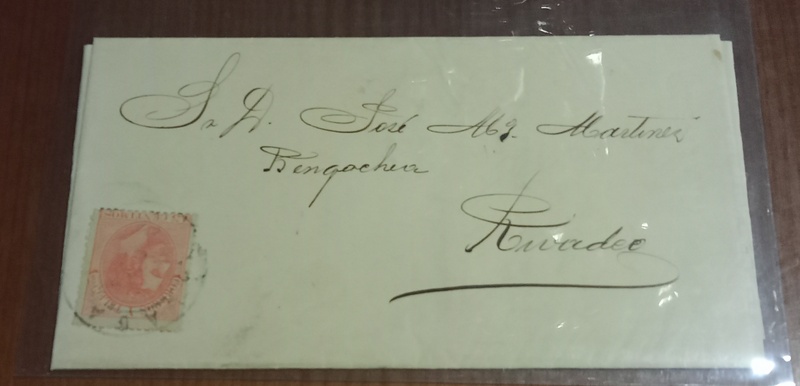 Sr. D. José Mª. Martinez
Bengochea
Rivadeo